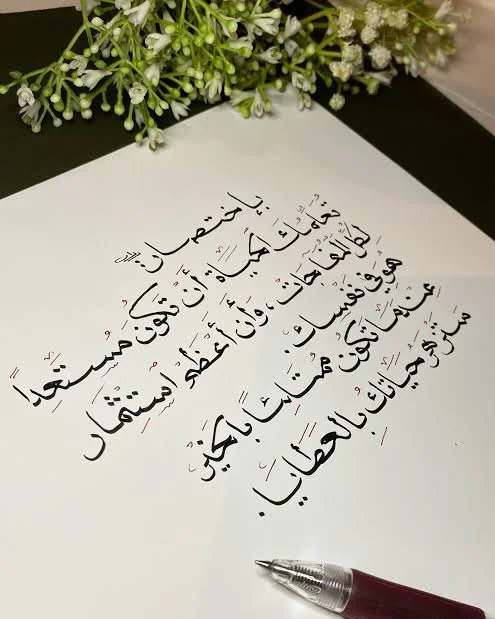 بإختصار:
تُعلّمُك الحَياة أن تكون مُستعِداً
لِكلّ المُفاجآت، وَأن أعظم استِثمار
هُو في نفسك.
عِندمَا تكون ممتلئاً بالخَير
سَتزهر حَياتك بِالعطَايَا.